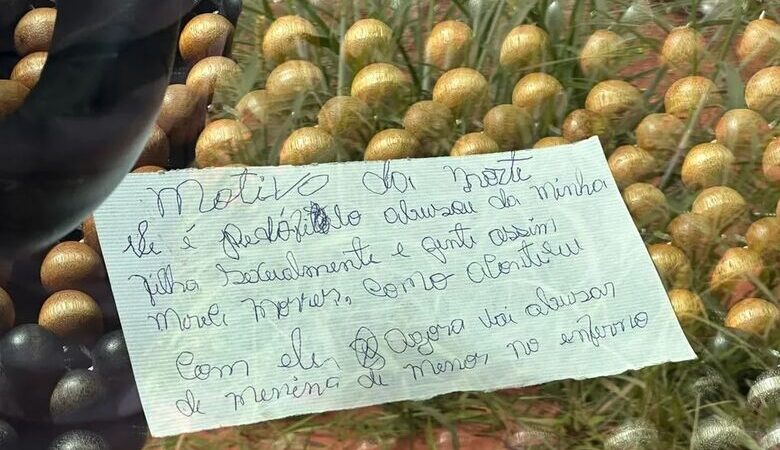 Motivo da morte
ele é pedófilo abusou da minha
filha sexualmente e gente assim
mereci morrer, como aconteceu
com ele, Agora vai abusar
de menina de menor no enferno